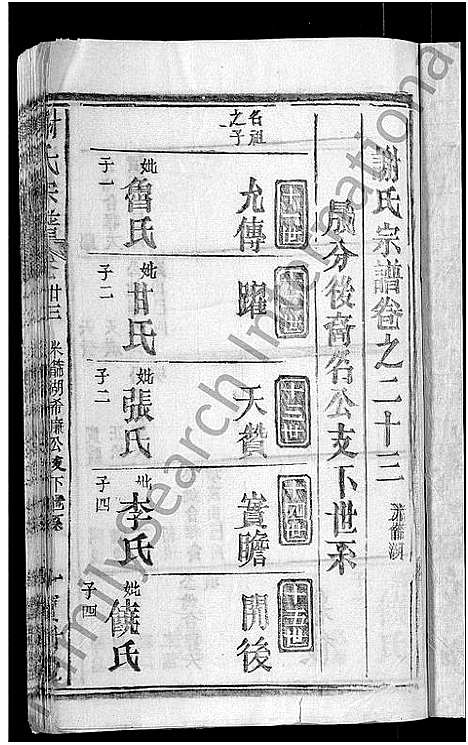 謝氏宗譜卷之二十三 米籮湖
晟分後裔名公支下世系
名祖之子
十一世
允傳
妣魯氏
子一
十二世
躍
妣甘氏
子二
十三世
天贊
妣張氏
子二
十四世
賓瞻
妣李氏
子四
十五世
開後
妣饒氏
子四
謝氏宗譜 卷廿三 米籮湖希廉公支下世系
FamilySearch International